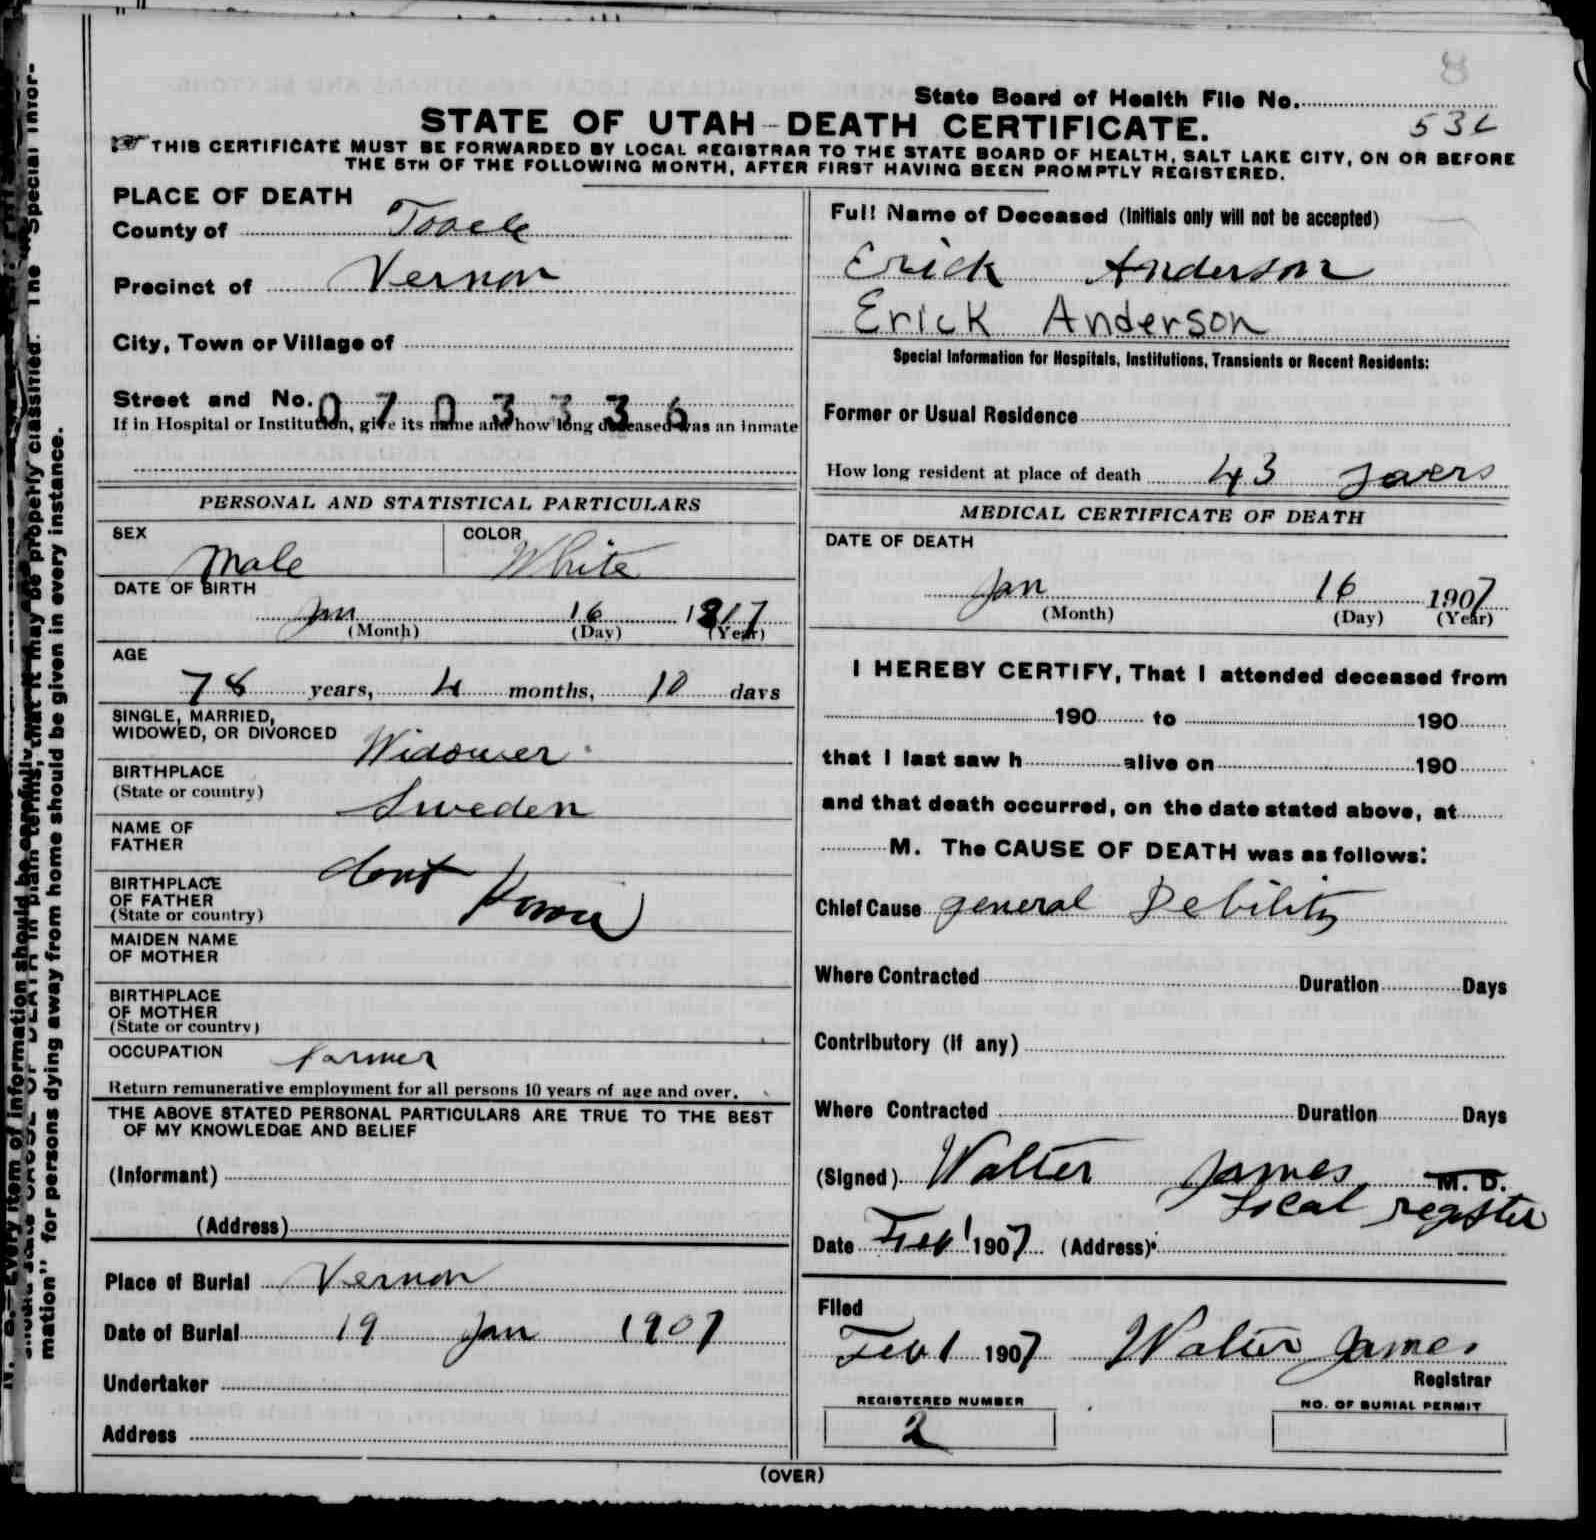 State Board of Health File No.
532
STATE OF UTAH - DEATH CERTIFICATE.
☞ THIS CERTIFICATE MUST BE FORWARDED BY LOCAL REGISTRAR TO THE STATE BOARD OF HEALTH, SALT LAKE CITY, ON OR BEFORE
THE 5TH OF THE FOLLOWING MONTH, AFTER FIRST HAVING BEEN PROMPTLY REGISTERED.
PLACE OF DEATH
County of Tooele
Precinct of Vernon
City, Town or Village of
Street and No. 0703336
If in Hospital or Institution, give its name and how long deceased was an inmate
PERSONAL AND STATISTICAL PARTICULARS
SEX Male COLOR White
DATE OF BIRTH
Jan 16 1817
(Month) (Day) (Year)
AGE
78 years, 4 months, 10 days
SINGLE, MARRIED,
WIDOWED, OR DIVORCED Widower
BIRTHPLACE
(State or country) Sweden
NAME OF
FATHER dont
BIRTHPLACE
OF FATHER Know
(State or country)
MAIDEN NAME
OF MOTHER
BIRTHPLACE
OF MOTHER
(State or country)
OCCUPATION farmer
Return remunerative employment for all persons 10 years of age and over.
THE ABOVE STATED PERSONAL PARTICULARS ARE TRUE TO THE BEST
OF MY KNOWLEDGE AND BELIEF
(Informant)
(Address)
Place of Burial Vernon
Date of Burial 19 Jan 1907
Undertaker
Address
Full Name of Deceased (Initials only will not be accepted)
Erick Anderson
Erick Anderson
Special Information for Hospitals, Institutions, Transients or Recent Residents:
Former or Usual Residence
How long resident at place of death 43 years
MEDICAL CERTIFICATE OF DEATH
DATE OF DEATH
Jan 16 1907
(Month) (Day) (Year)
I HEREBY CERTIFY, That I attended deceased from
190 to 190
that I last saw h alive on 190
and that death occurred, on the date stated above, at
M. The CAUSE OF DEATH was as follows:
Chief Cause general Debility
Where Contracted Duration Days
Contributory (if any)
Where Contracted Duration Days
(Signed) Walter James M. D.
Local register
Date Feb 1 1907 (Address)
Filed
Feb 1 1907 Walter James
Registrar
REGISTERED NUMBER NO. OF BURIAL PERMIT
2
(OVER)
mation" for persons dying away from home should be given in every instance.